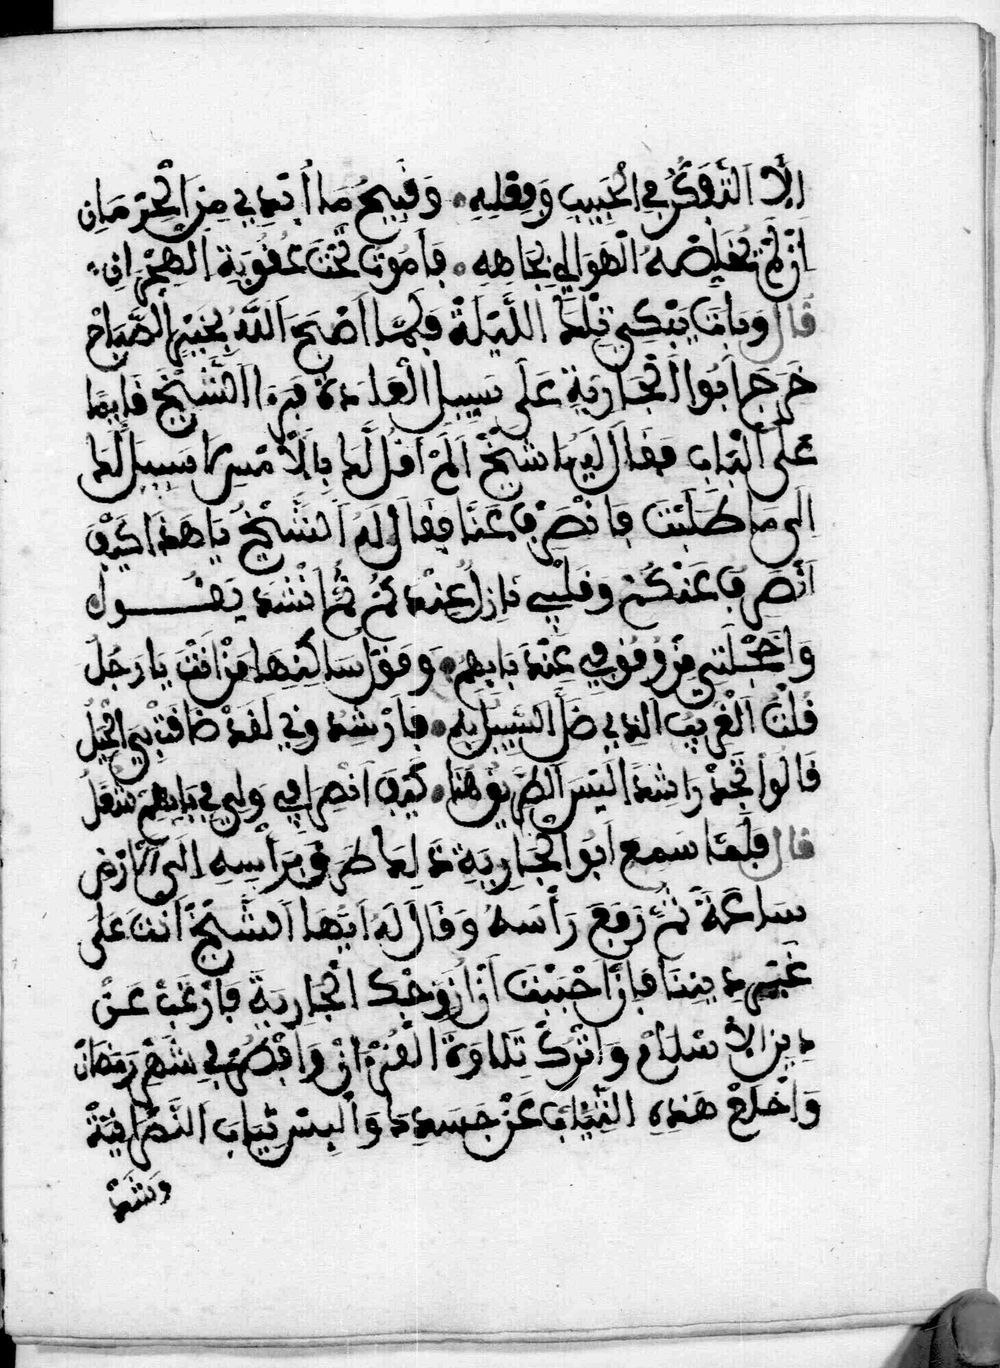 إلا التفكر في الحبيب وفعله • وقبيح ما أبدي من الحرمان
إن لم يخلصه الهوا لي بجاهه • فأموت تحت عقوبة الهجران •
قال وبات يبكي تلك الليلة فلما أصبح الله بخير الصباح
خرج ابوا الجارية على سبيل العادة فرءا الشيخ قايما
على الباب فقال له يا شيخ الم اقل لك بالامس لا سبيل لك
الى ما طلبت فانصرف عنا فقال له الشيخ يا هذا كيف
أنصرف عنكم وقلبي نازل عندكم ثم انشد يقـــول
واخجلتي من وقوفي عند بابهم • وقول ساكنها من أنت يا رجل
قلت الغريب الذي ضل السبيل به • فارشدوني لقد ضاقت بي الحيل
قالوا تجد راشدا ليس الطريق هنا • كيف انصرافي ولي في بابهم شغل
قال فلما سمع ابو الجارية ذلك اطرق برأسه الى الأرض
ساعة ثم رفع رأسه وقال له ايها الشيخ أنت على
غير ديننا فإن احببت ان أزوجك الجارية فارغب عن
دين الإسلام واترك تلاوة القرءان وافطر في شهر رمضان
واخلع هذه الثياب عن جسدك والبس ثياب النصرانية
وشد